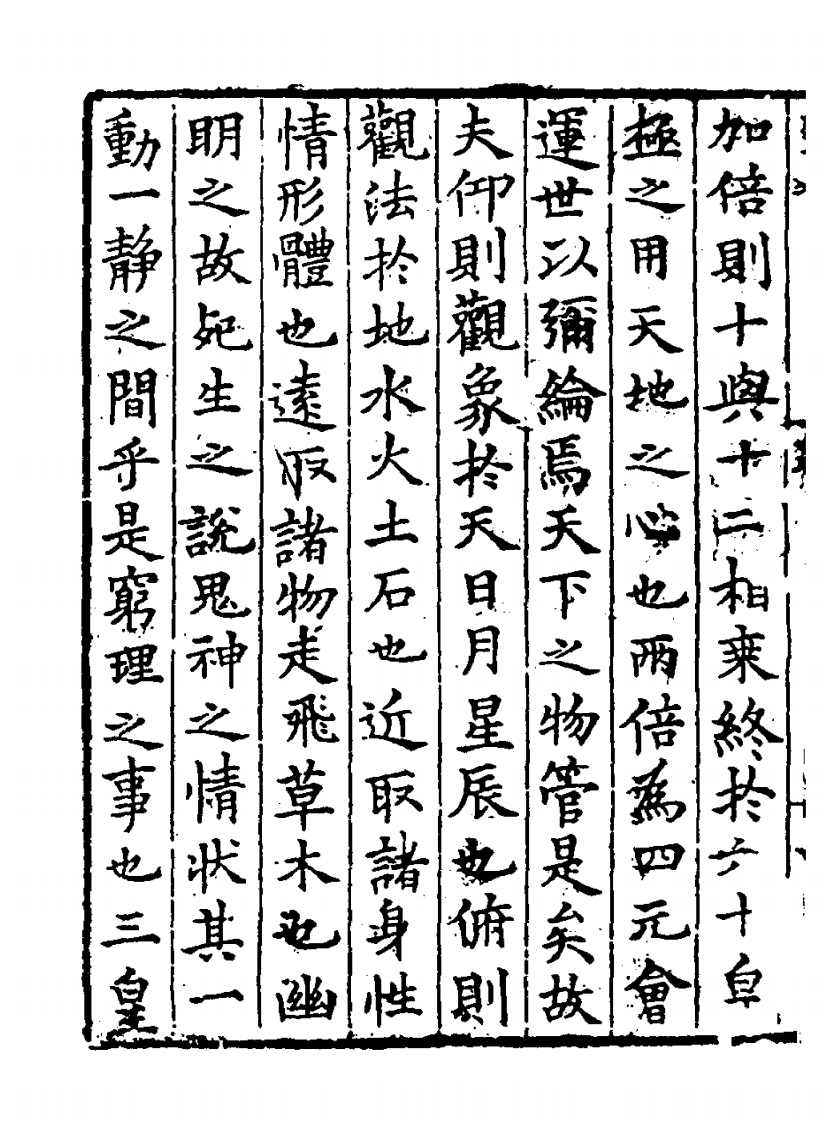 加倍則十與十二相乗終於六十皇
極之用天地之心也兩倍為四元會
運世以彌綸焉天下之物管是矣故
夫仰則觀象於天日月星辰也俯則
觀法於地水火土石也近取諸身性
情形體也遠取諸物走飛草木也幽
明之故死生之說鬼神之情狀其一
動一靜之間乎是窮理之事也三皇